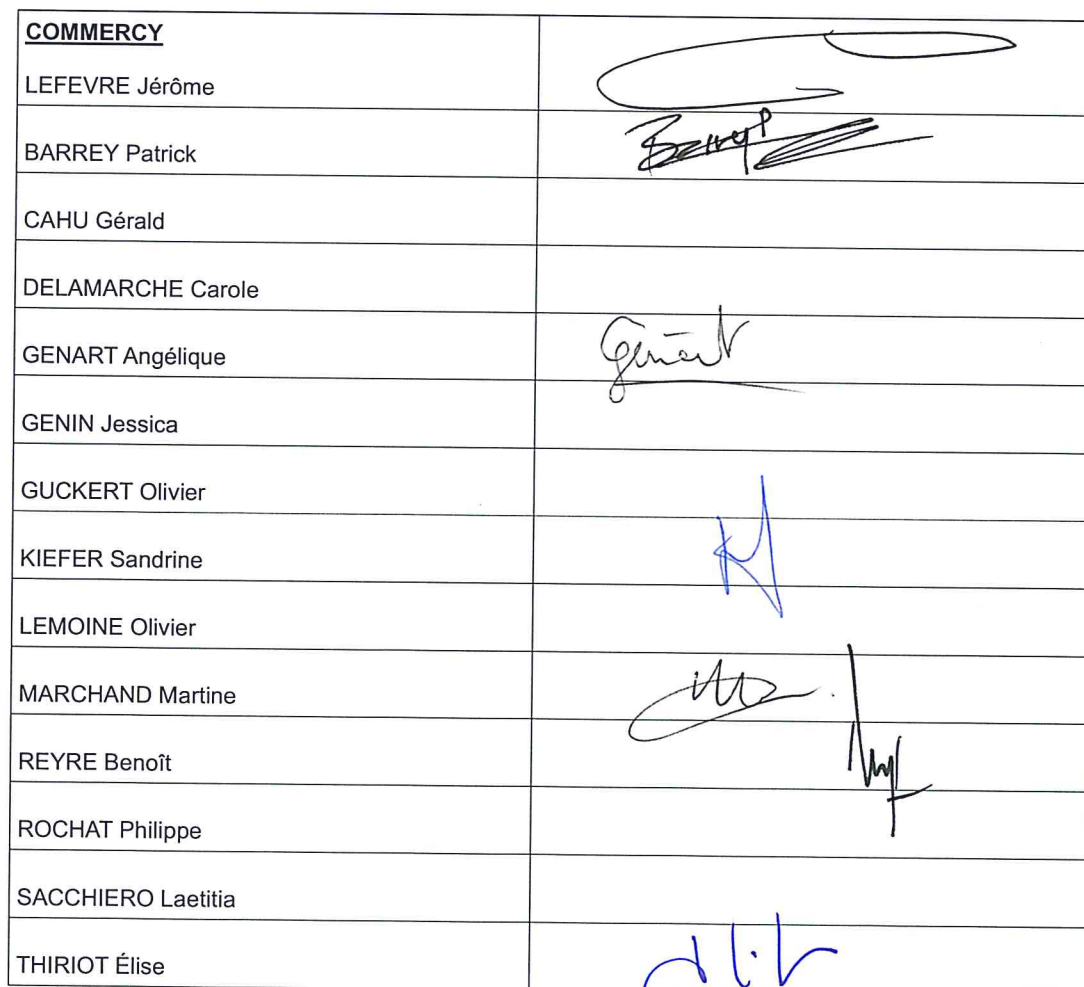 COMMERCY
LEFEVRE Jérôme
BARREY Patrick
CAHU Gérald
DELAMARCHE Carole
GENART Angélique
Genart
GENIN Jessica
GUCKERT Olivier
KIEFER Sandrine
LEMOINE Olivier
MARCHAND Martine
REYRE Benoît
ROCHAT Philippe
SACCHIERO Laetitia
THIRIOT Élise